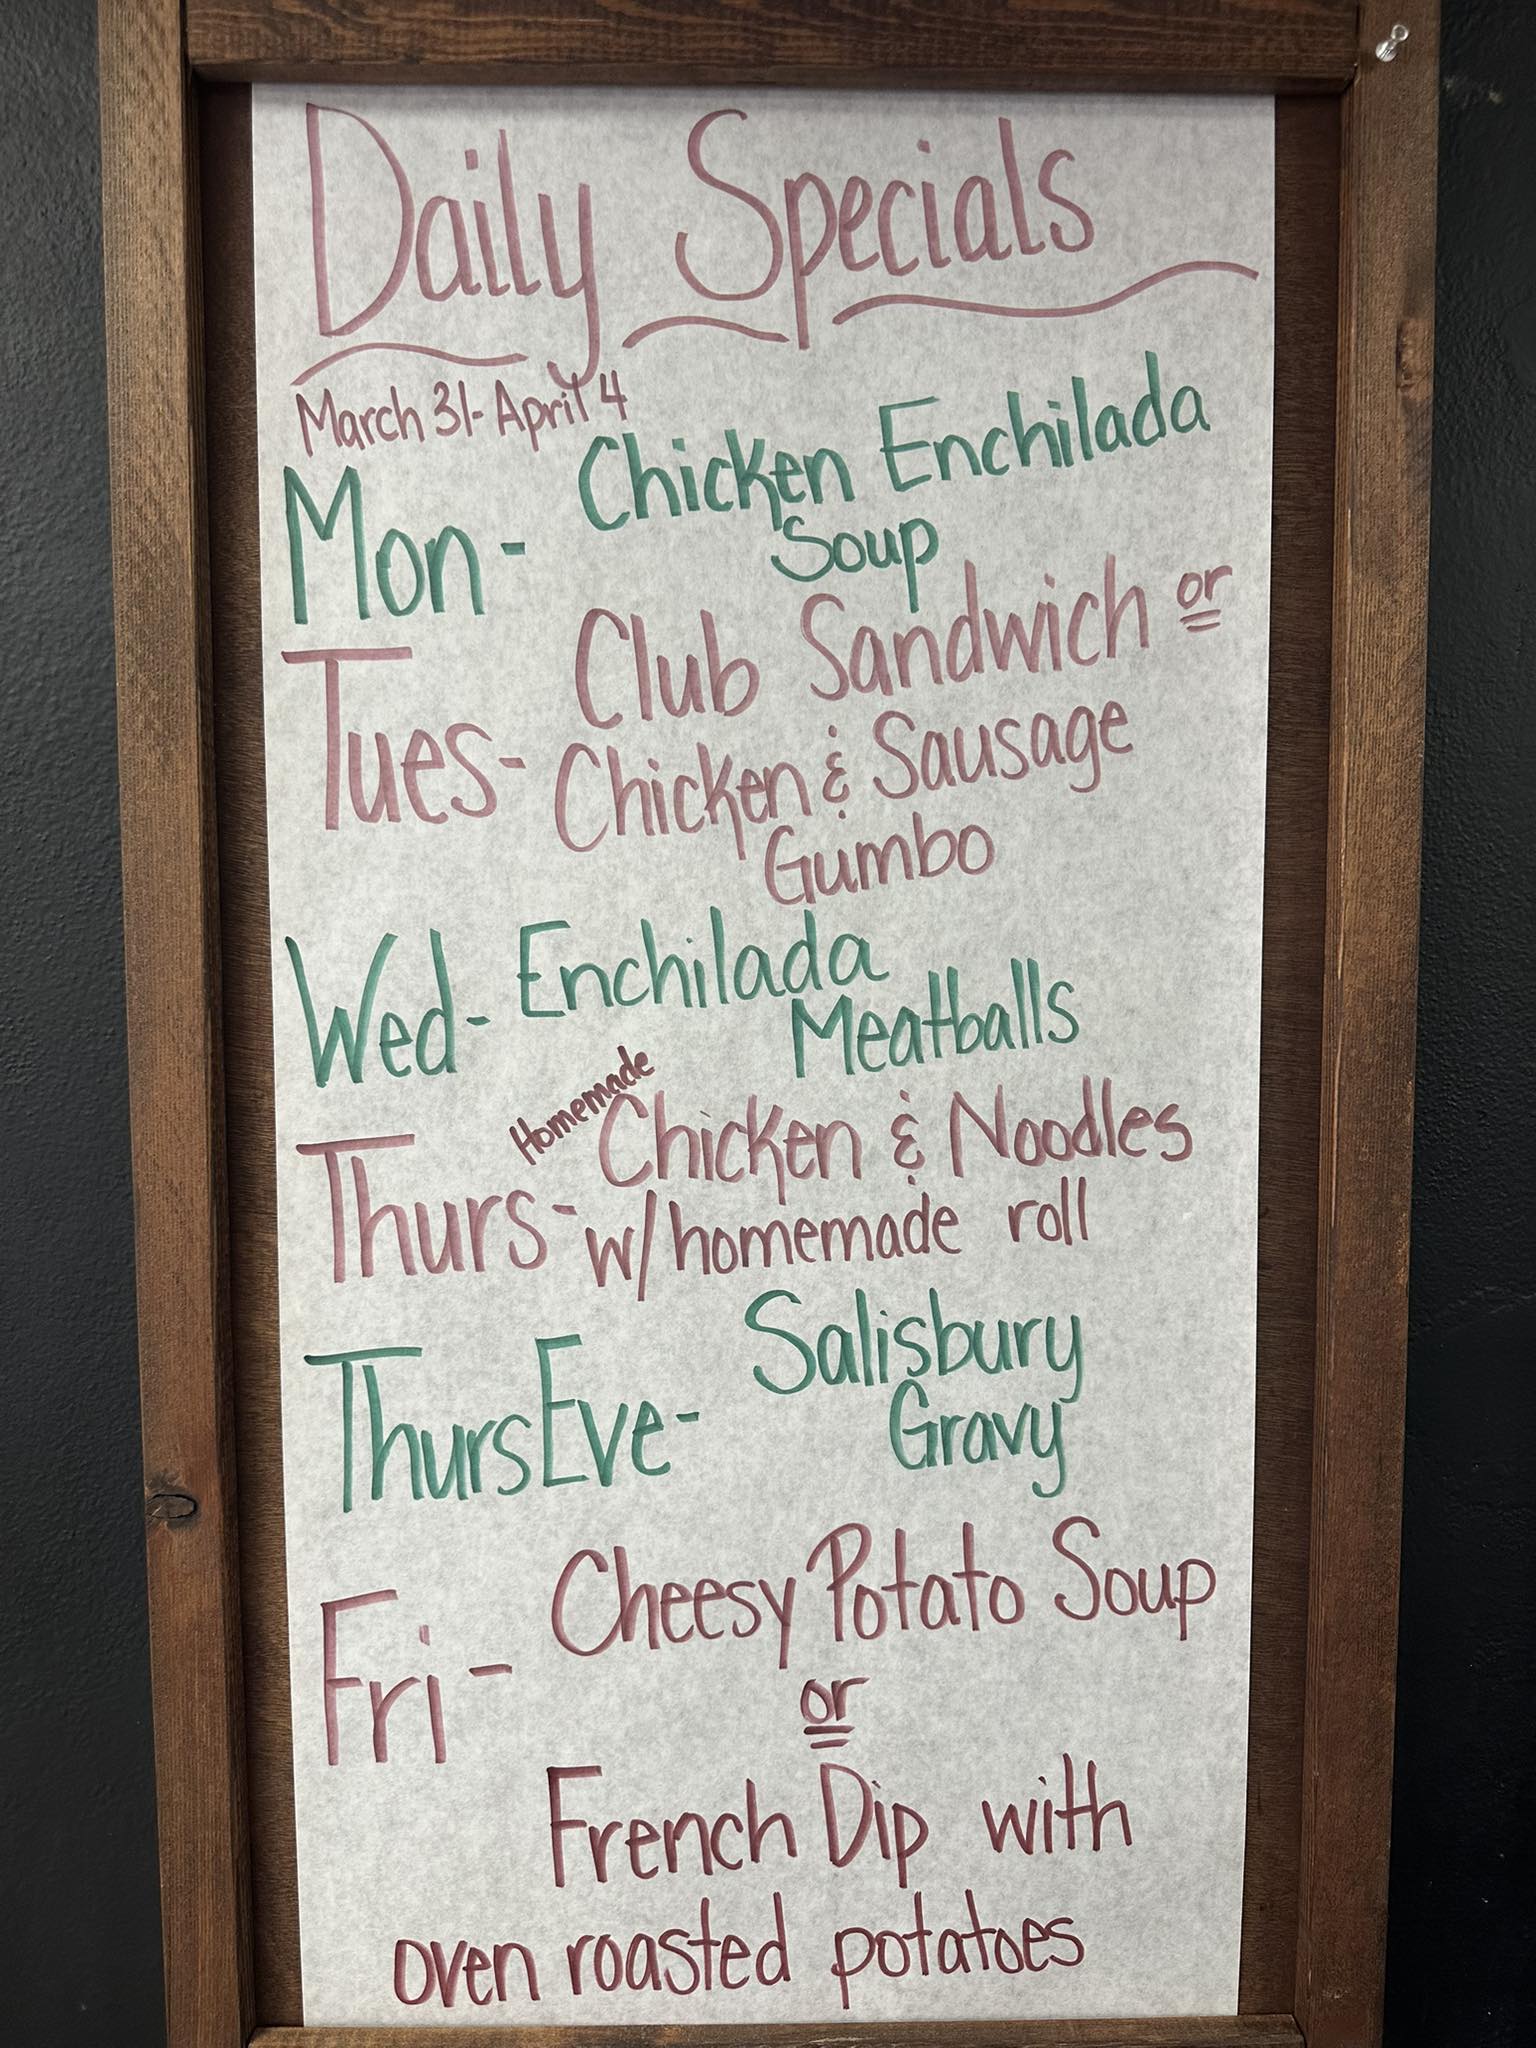 Daily Specials
March 31-April 4
Mon - Chicken Enchilada
Soup
Tues- Club Sandwich or
Chicken & Sausage
Gumbo
Wed- Enchilada
Meatballs
Thurs- Homemade Chicken & Noodles
w/homemade roll
Thurs Eve- Salisbury
Gravy
Fri- Cheesy Potato Soup
or
French Dip with
oven roasted potatoes